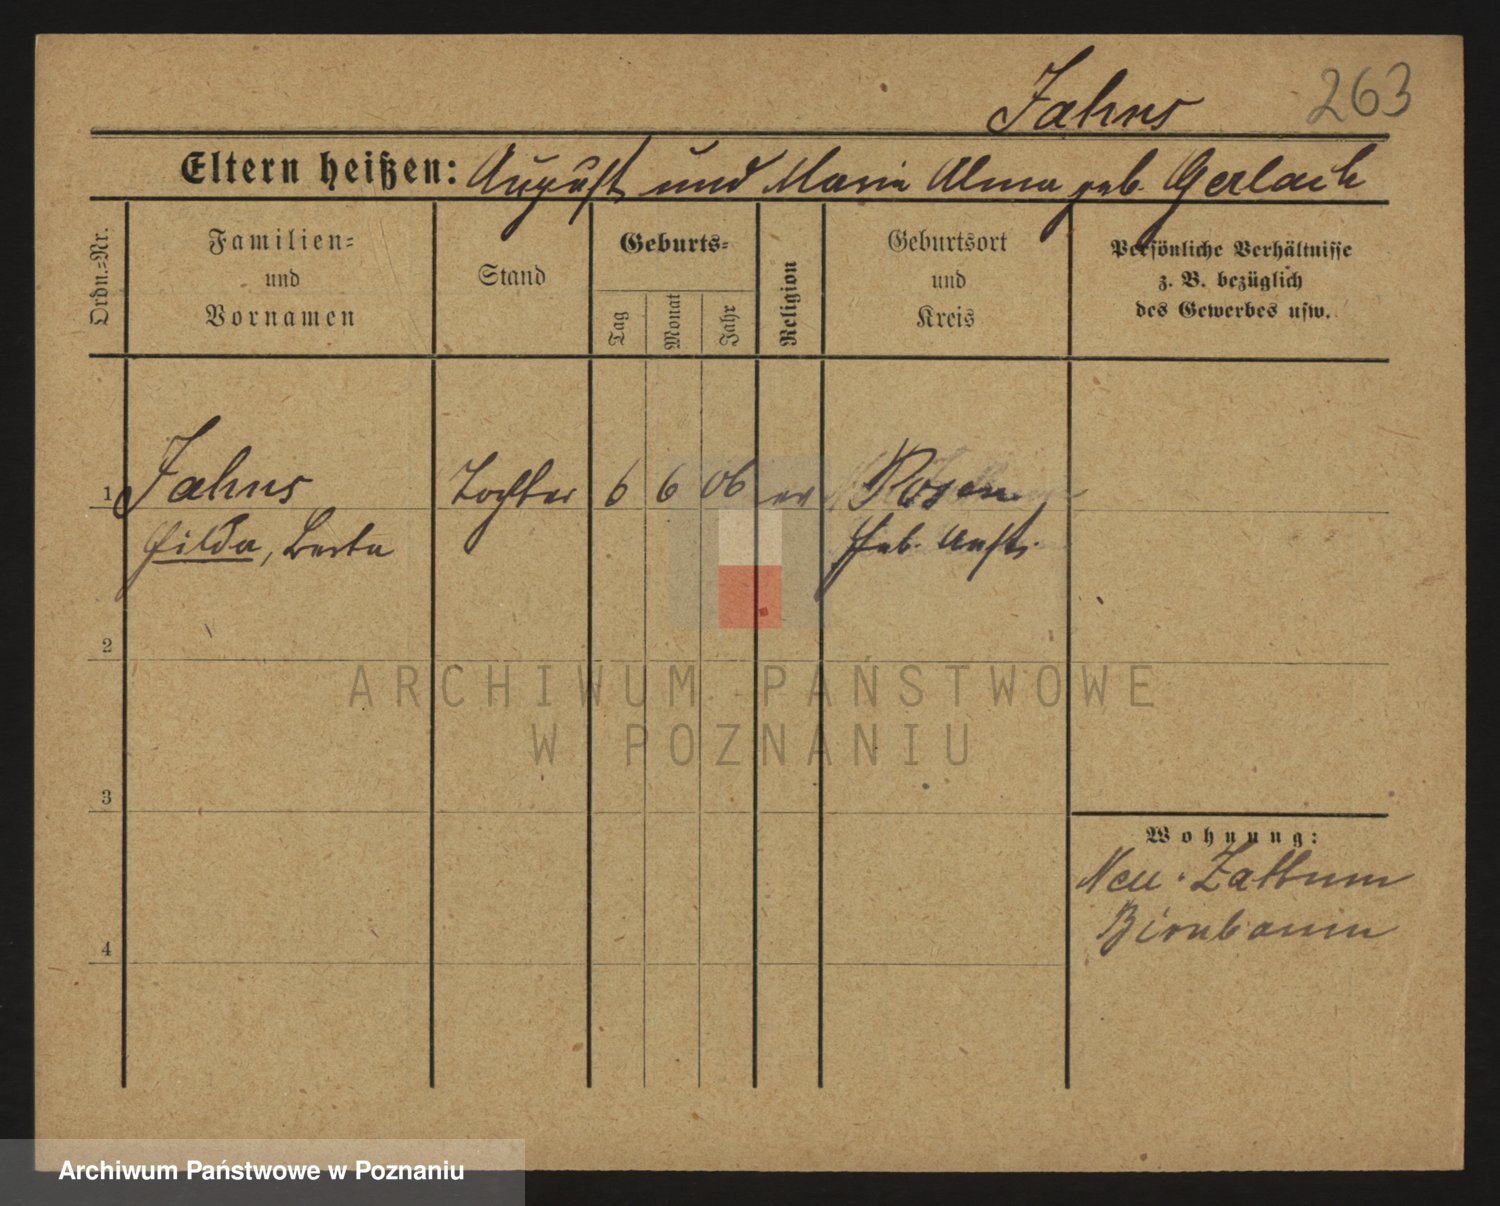 263
Jahns
Eltern heißen: August und Marie Alma geb. Gerlach
Ordn.-Nr.
Familien-
und
Vornamen
Stand
Geburts-
Tag
Monat
Jahr
Religion
Geburtsort
und
Kreis
Persönliche Verhältnisse
z. B. bezüglich
des Gewerbes usw.
1 Jahns Tochter 6 6 06 ev Posen
Hilda, Berta Heb. Anst.
2
ARCHIWUM PAŃSTWOWE
W POZNANIU
3
Wohnung:
Neu-Zattum
Birnbaum
4
Archiwum Państwowe w Poznaniu